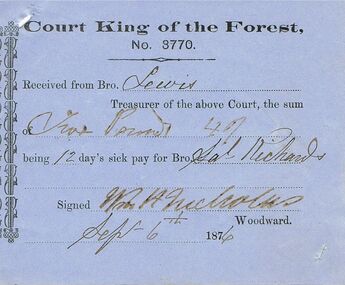 Court King of the Forest,
No. 3770.
Received from Bro. Lewis
Treasurer of the above Court, the sum
of Two Pounds
being 12 day's sick pay for Bro. Richards
Signed Wm H Nicholas
Woodward.
Sept 6th 1876